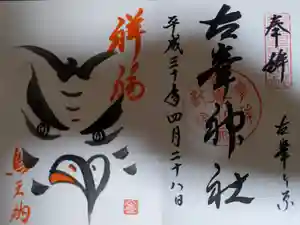 奉拝
古峯神社
平成三十年四月二十八日
古峯ヶ原
祥福
烏天狗